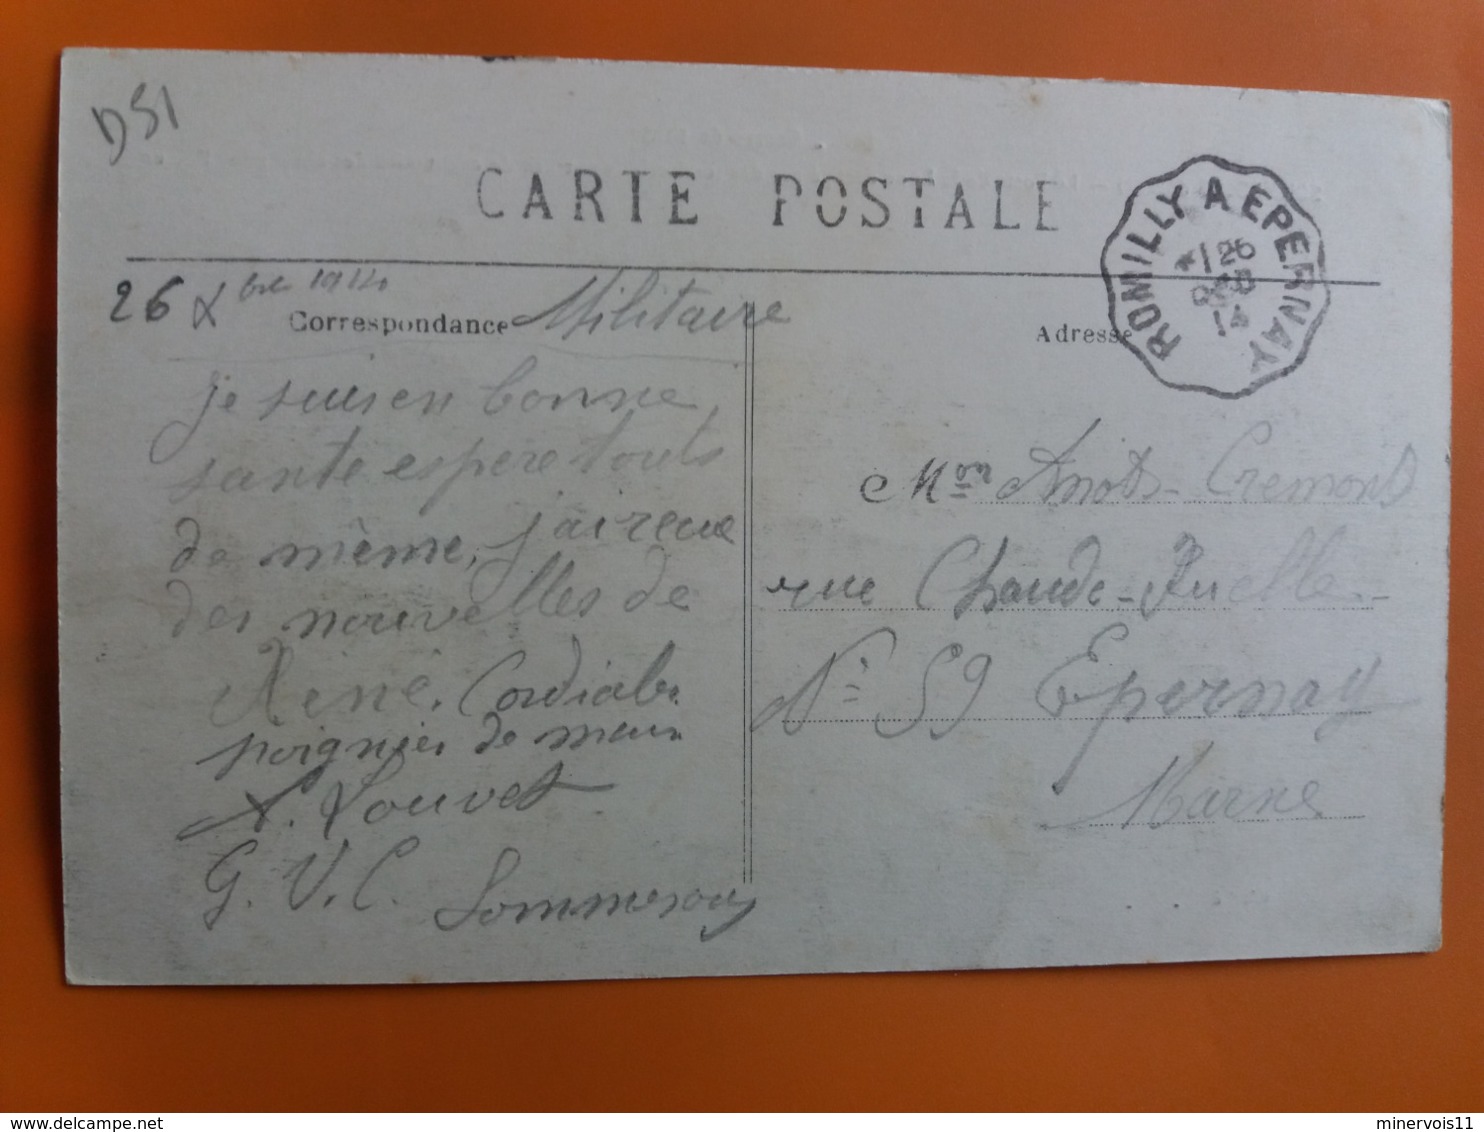 D51
CARTE POSTALE
ROMILLY A EPERNAY
*1 26
DEB
14
26 Xbre 1914
Correspondance Militaire
Adresse
je suis en bonne
sante espere touts
de même, j'ai reçue
des nouvelles de
Réné. Cordiales
poignées de main
A. Louvet
G. V. C. Sommesous
Mon Amots-Cremont
rue Chaude-Ruelle-
No 59 Epernay
Marne
delcampe.net
minervois11